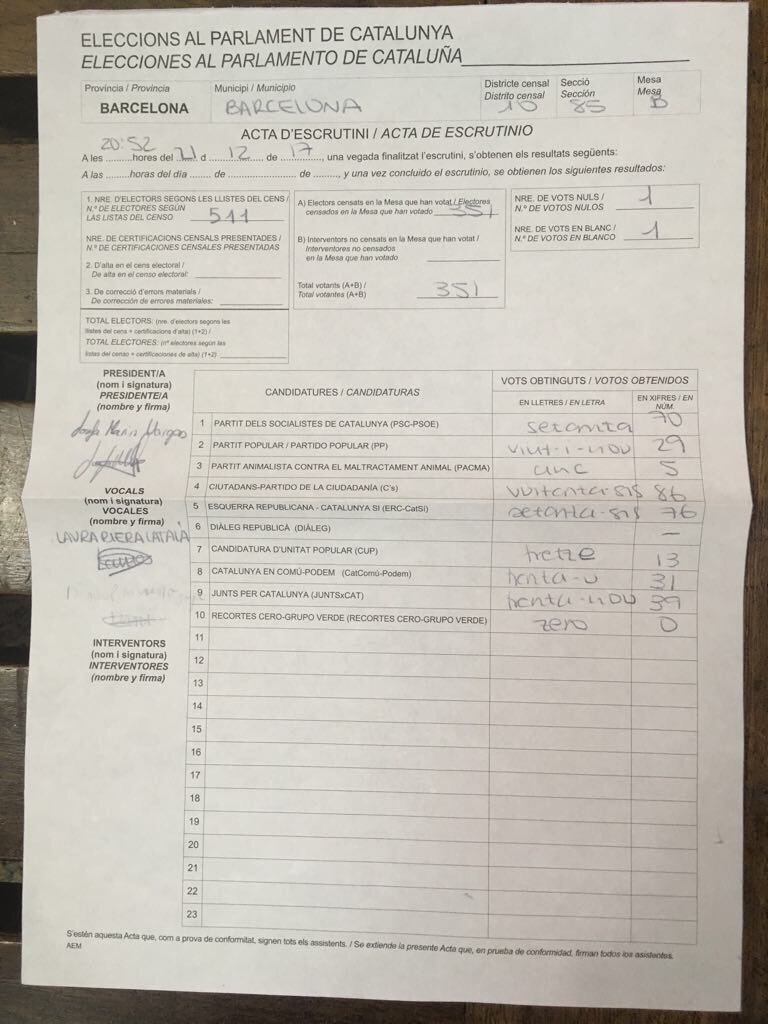 ELECCIONS AL PARLAMENT DE CATALUNYA
ELECCIONES AL PARLAMENTO DE CATALUÑA
Província / Provincia
BARCELONA
Municipi / Municipio
BARCELONA
Districte censal
Distrito censal
10
Secció
Sección
85
Mesa
Mesa
B
ACTA D'ESCRUTINI / ACTA DE ESCRUTINIO
A les 20:52 hores del 21 d 12 de 17, una vegada finalitzat l'escrutini, s'obtenen els resultats següents:
A las .........horas del día ....... de ..................... de ............, y una vez concluido el escrutinio, se obtienen los siguientes resultados:
1. NRE. D'ELECTORS SEGONS LES LLISTES DEL CENS /
N.º DE ELECTORES SEGÚN
LAS LISTAS DEL CENSO 511
NRE. DE CERTIFICACIONS CENSALS PRESENTADES /
N.º DE CERTIFICACIONES CENSALES PRESENTADAS
2. D'alta en el cens electoral /
De alta en el censo electoral:
3. De correcció d'errors materials /
De corrección de errores materiales:
TOTAL ELECTORS: (nre. d'electors segons les
llistes del cens + certificacions d'alta) (1+2) /
TOTAL ELECTORES: (nº electores según las
listas del censo + certificaciones de alta) (1+2)
A) Electors censats en la Mesa que han votat / Electores
censados en la Mesa que han votado 351
B) Interventors no censats en la Mesa que han votat /
Interventores no censados
en la Mesa que han votado
Total votants (A+B) /
Total votantes (A+B) 351
NRE. DE VOTS NULS /
N.º DE VOTOS NULOS 1
NRE. DE VOTS EN BLANC /
N.º DE VOTOS EN BLANCO 1
PRESIDENT/A
(nom i signatura)
PRESIDENTE/A
(nombre y firma)
VOCALS
(nom i signatura)
VOCALES
(nombre y firma)
LAURA RIERA CATALÀ
INTERVENTORS
(nom i signatura)
INTERVENTORES
(nombre y firma)
CANDIDATURES / CANDIDATURAS
VOTS OBTINGUTS / VOTOS OBTENIDOS
EN LLETRES / EN LETRA
EN XIFRES / EN NÚM.
1 PARTIT DELS SOCIALISTES DE CATALUNYA (PSC-PSOE) setanta 70
2 PARTIT POPULAR / PARTIDO POPULAR (PP) vint-i-nou 29
3 PARTIT ANIMALISTA CONTRA EL MALTRACTAMENT ANIMAL (PACMA) cinc 5
4 CIUTADANS-PARTIDO DE LA CIUDADANÍA (C's) vuitanta-sis 86
5 ESQUERRA REPUBLICANA - CATALUNYA SI (ERC-CatSi) setanta-sis 76
6 DIÀLEG REPUBLICÀ (DIÀLEG) —
7 CANDIDATURA D'UNITAT POPULAR (CUP) tretze 13
8 CATALUNYA EN COMÚ-PODEM (CatComú-Podem) trenta-u 31
9 JUNTS PER CATALUNYA (JUNTSxCAT) trenta-nou 39
10 RECORTES CERO-GRUPO VERDE (RECORTES CERO-GRUPO VERDE) zero 0
11
12
13
14
15
16
17
18
19
20
21
22
23
S'estén aquesta Acta que, com a prova de conformitat, signen tots els assistents. / Se extiende la presente Acta que, en prueba de conformidad, firman todos los asistentes.
AEM